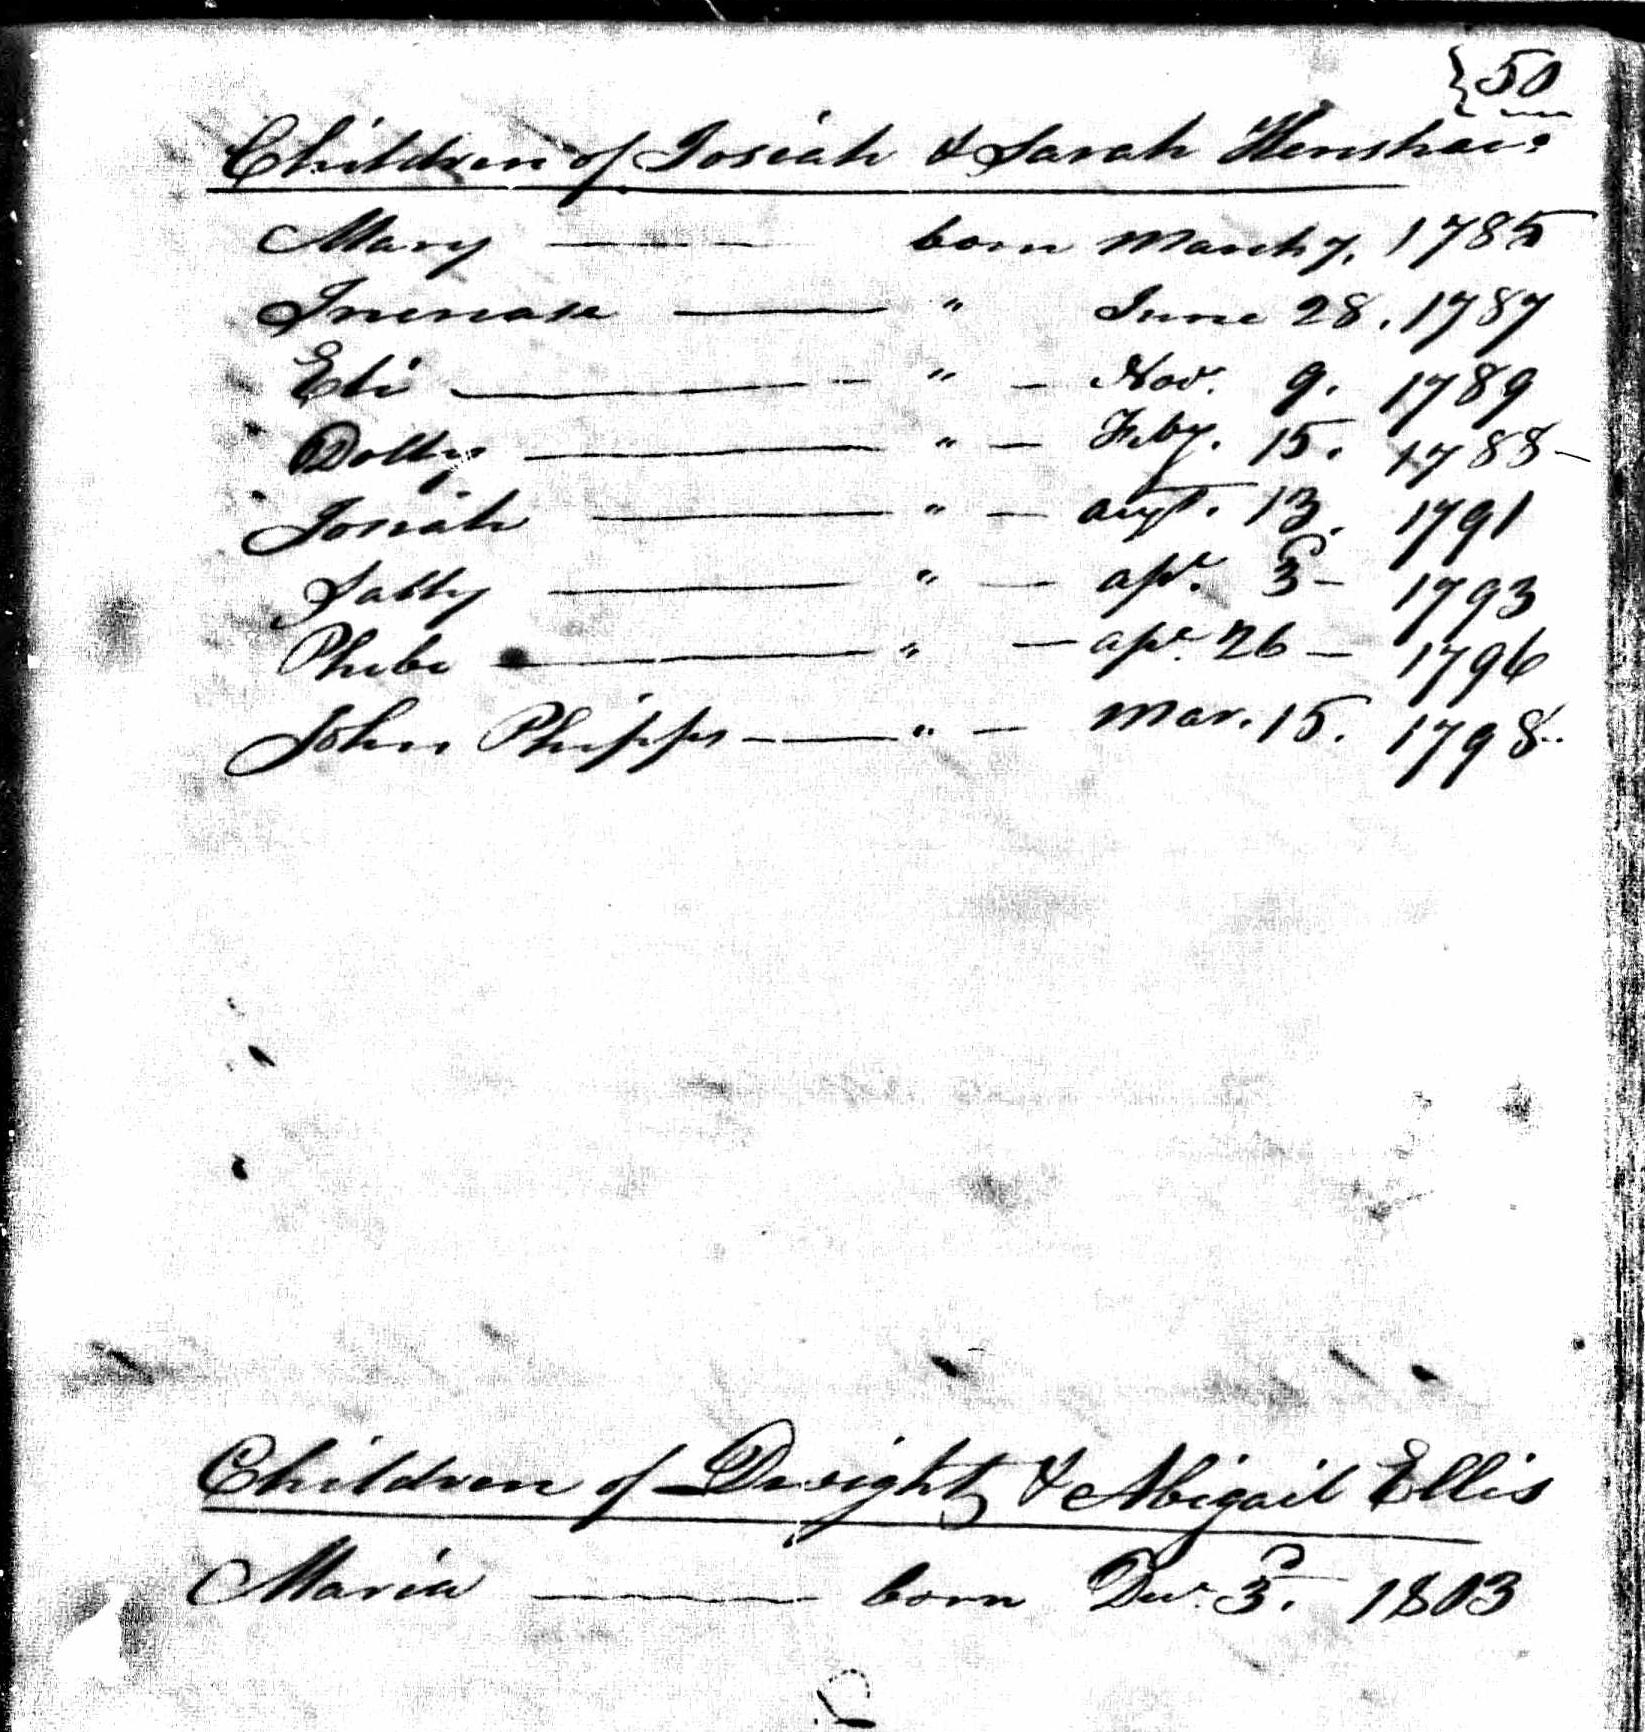 50
Children of Josiah & Sarah Henshaw
Mary born March 7. 1785
Increase " June 28. 1787
Eli " Nov. 9. 1789
Dolly " Feby. 15. 1788
Josiah " Augt. 13. 1791
Sally " Apr. 3 1793
Phebe " Apr. 26 1796
John Phipps " Mar. 15. 1798
Children of Dwight & Abigail Ellis
Maria born Dec. 3. 1803